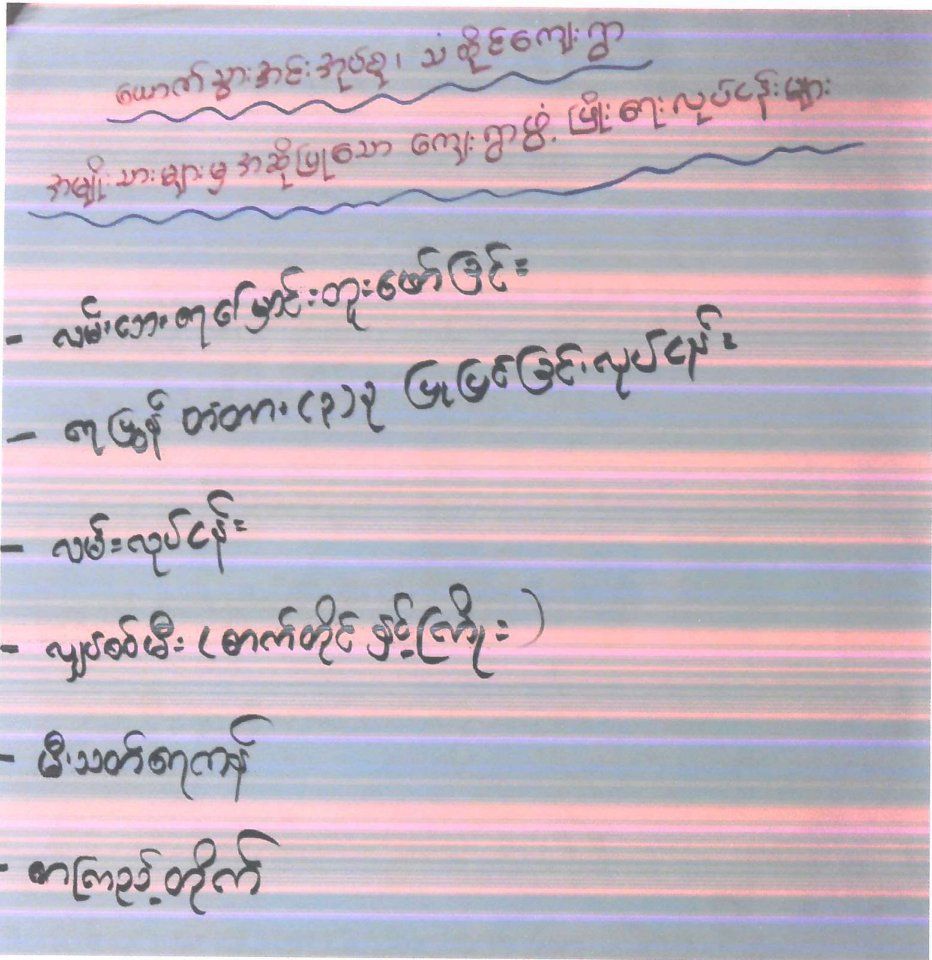 ယောက်သွားအင်းအုပ်စု၊ သံထိုင်ကျေးရွာ
အမျိုးသားများမှ အဆိုပြုသော ကျေးရွာဖွံ့ဖြိုးရေးလုပ်ငန်းများ
- လမ်းဘေးရေမြောင်းတူးဖော်ခြင်း
- ရေပြွန် တံတား (၃) ခု ပြုပြင်ခြင်းလုပ်ငန်း
- လမ်းလုပ်ငန်း
- လျှပ်စစ်မီး (ဓာတ်တိုင် နှင့် ကြိုး)
- မီးသတ်ရေကန်
- စာကြည့်တိုက်